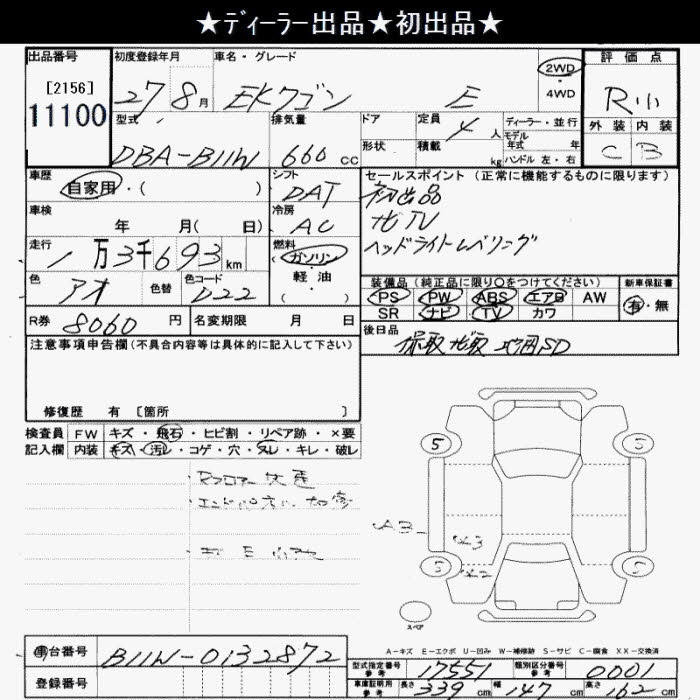 ★ディーラー出品★初出品★
出品番号 初度登録年月 車名・グレード 評価点
[2156]
11100
27 8月 EKワゴン E
2WD
・
4WD
R小
型式 排気量 ドア 定員 4人 ディーラー・並行 外装 内装
モデル年式 年
DBA-B11W 660cc 形状 積載 kg ハンドル 左・右 C B
車歴 シフト セールスポイント(正常に機能するものに限ります)
自家用・( ) DAT 初出品
車検 冷房 地TV
年 月( 日) AC ヘッドライトレベリング
走行 燃料
1万3千693km ガソリン
・
軽油
( )
色 色替 色コード 装備品(純正品に限り○をつけてください) 新車保証書
アオ D22 PS PW ABS エアB AW 有・無
SR ナビ TV カワ
R券 8060円 名変期限 月 日 後日品
注意事項申告欄(不具合内容等は具体的に記入して下さい)
修復歴 有 [箇所 ]
検査員 FW キズ・飛石・ヒビ割・リペア跡・×要
記入欄 内装 キズ・汚レ・コゲ・穴・ヌレ・キレ・破レ
5 5
A3
5 5
スペア
A-キズ E-エクボ U-凹み W-補修跡 S-サビ C-腐食 XX-交換済
車台番号 B11W-0132872 型式指定番号 参考 17551 類別区分番号 参考 0001
登録番号 車庫証明用 参考 長さ 339cm 幅 147cm 高さ 162cm